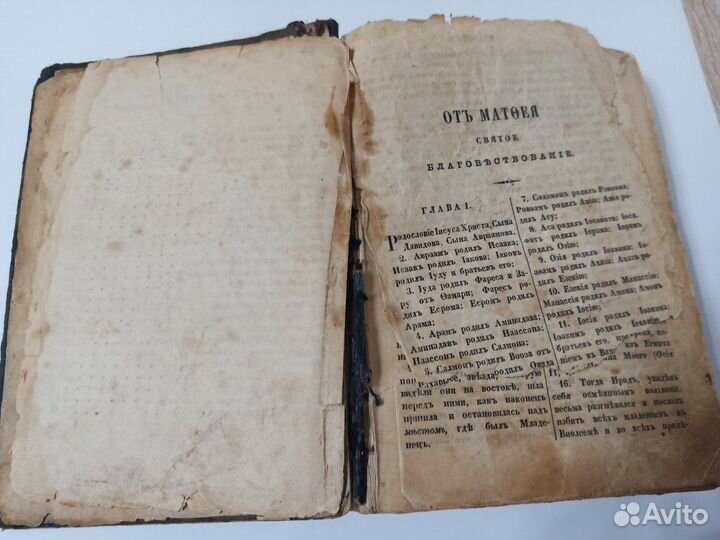 ОТЪ МАТѲЕЯ
СВЯТОЕ
БЛАГОВѢСТВОВАНІЕ.
ГЛАВА 1.
Родословіе Іисуса Христа, Сына
Давидова, Сына Авраамова.
2. Авраамъ родилъ Исаака;
Исаакъ родилъ Іакова; Іаковъ
родилъ Іуду и братьевъ его;
3. Іуда родилъ Фареса и За-
ру отъ Ѳамари; Фаресъ ро-
дилъ Есрома; Есромъ родилъ
Арама;
4. Арамъ родилъ Аминадава;
Аминадавъ родилъ Наассона;
Наассонъ родилъ Салмона;
5. Салмонъ родилъ Вооза отъ
звѣзда, родилъ Овида
видѣли они на востокѣ, шла
передъ ними, какъ наконецъ
пришла и остановилась надъ
мѣстомъ, гдѣ былъ Младе-
нецъ.
7. Соломонъ родилъ Ровоама;
Ровоамъ родилъ Авію; Авія
родилъ Асу;
8. Аса родилъ Іосафата; Іоса-
фатъ родилъ Іорама; Іорамъ
родилъ Озію;
9. Озія родилъ Іоаѳама; Іо-
аѳамъ родилъ Ахаза; Ахазъ ро-
дилъ Езекію;
10. Езекія родилъ Манассію;
Манассія родилъ Амона; Амонъ
родилъ Іосію;
11. Іосія родилъ Іоакима;
Іоакимъ родилъ Іехонію
братьевъ его, пророка,
изъ Египта
Моего (Осіи
11,
16. Тогда Иродъ, увидѣвъ
себя осмѣяннымъ волхвами,
весьма разгнѣвался и послалъ
избить всѣхъ младенцевъ въ
Виѳлеемѣ и во всѣхъ предѣ-
Avito